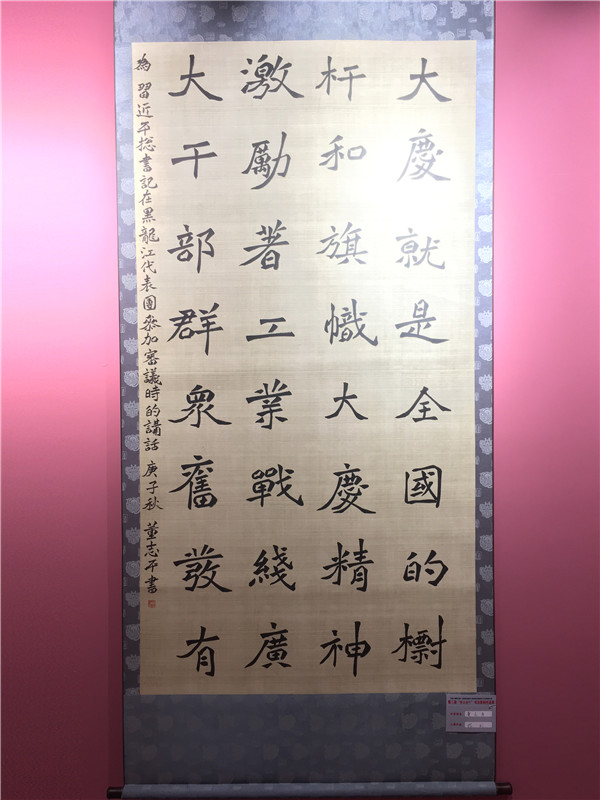 大慶就是全國的標
杆和旗幟大慶精神
激勵著工業戰綫廣
大干部群衆奮發有
為習近平総書記在黑龍江代表團叅加審議時的講話 庚子秋 董志平書